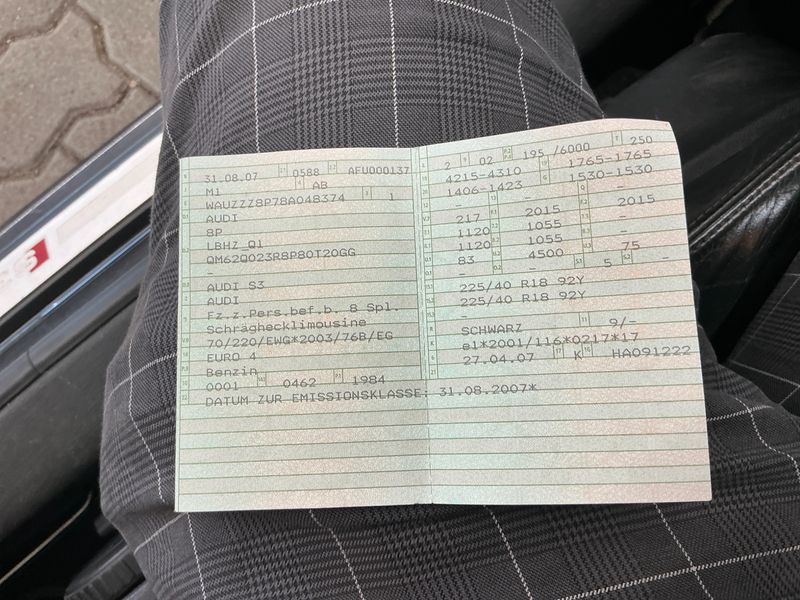 31.08.07 0588 AFU000137
M1 AB
WAUZZZ8P78A048374 1
AUDI
8P
LBHZ_Q1
QM62Q023R8P80T20GG
-
AUDI S3
AUDI
Fz.z.Pers.bef.b. 8 Spl.
Schräghecklimousine
70/220/EWG*2003/76B/EG
EURO 4
Benzin
0001 0462 1984
DATUM ZUR EMISSIONSKLASSE: 31.08.2007*
2 02 195 /6000 250
4215-4310 1765-1765
1406-1423 1530-1530
- - -
217 2015 2015
1120 1055 -
1120 1055 -
83 4500 75
- - 5 -
225/40 R18 92Y
225/40 R18 92Y
-
SCHWARZ 9/-
e1*2001/116*0217*17
27.04.07 K HA091222